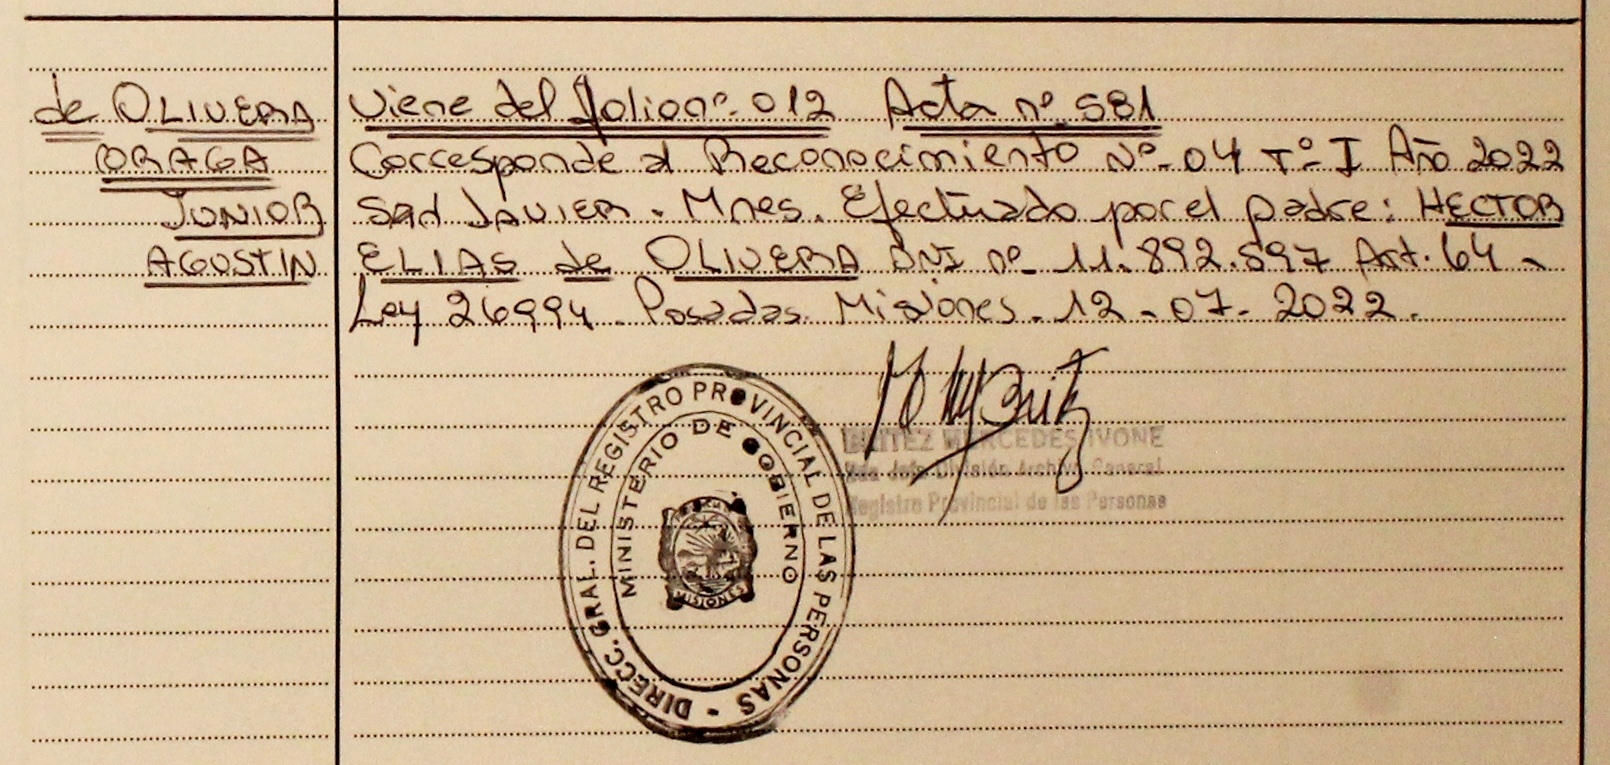 de OLIVERA
BRAGA
JUNIOR
AGUSTIN
Viene del folio nº. 012 Acta nº 581
Corresponde al Reconocimiento Nº-04 Tº-I Año 2022
San Javier. Mnes. Efectuado por el padre: HECTOR
ELIAS de OLIVERA DNI nº 11.892.597 Art. 64 -
Ley 26994. Posadas. Misiones. 12-07-2022.
BENITEZ MERCEDES IVONE
Jefe División Archivo General
Registro Provincial de las Personas
DIRECC. GRAL. DEL REGISTRO PROVINCIAL DE LAS PERSONAS -
MINISTERIO DE GOBIERNO
MISIONES